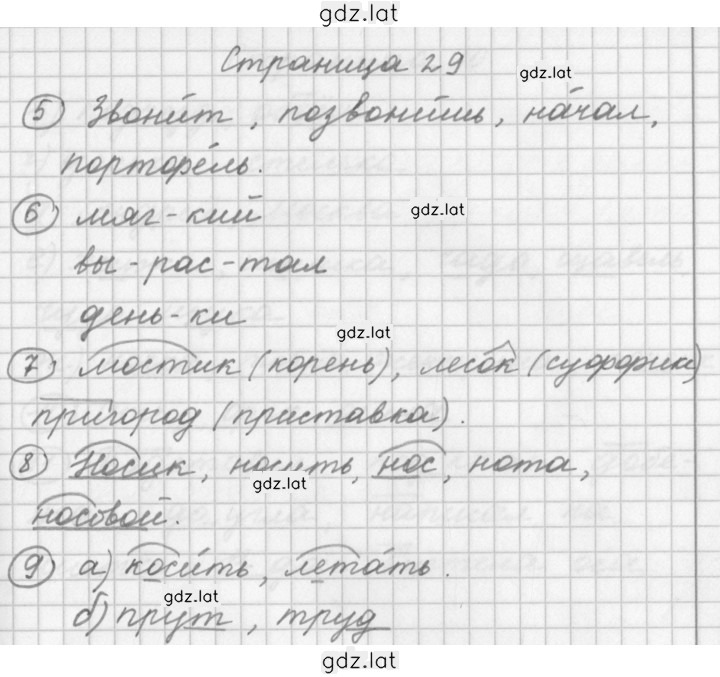 gdz.lat
Страница 29
gdz.lat
5 Звони́т, позвони́шь, на́чал,
портфе́ль.
6 мяг-кий
gdz.lat
вы-рас-тал
день-ки
gdz.lat
7 мостик (корень), лесок (суффикс)
пригород (приставка).
8 Носик, носить, нос, нота,
gdz.lat
носовой.
9 а) коси́ть, лета́ть.
gdz.lat
б) прут, труд
gdz.lat